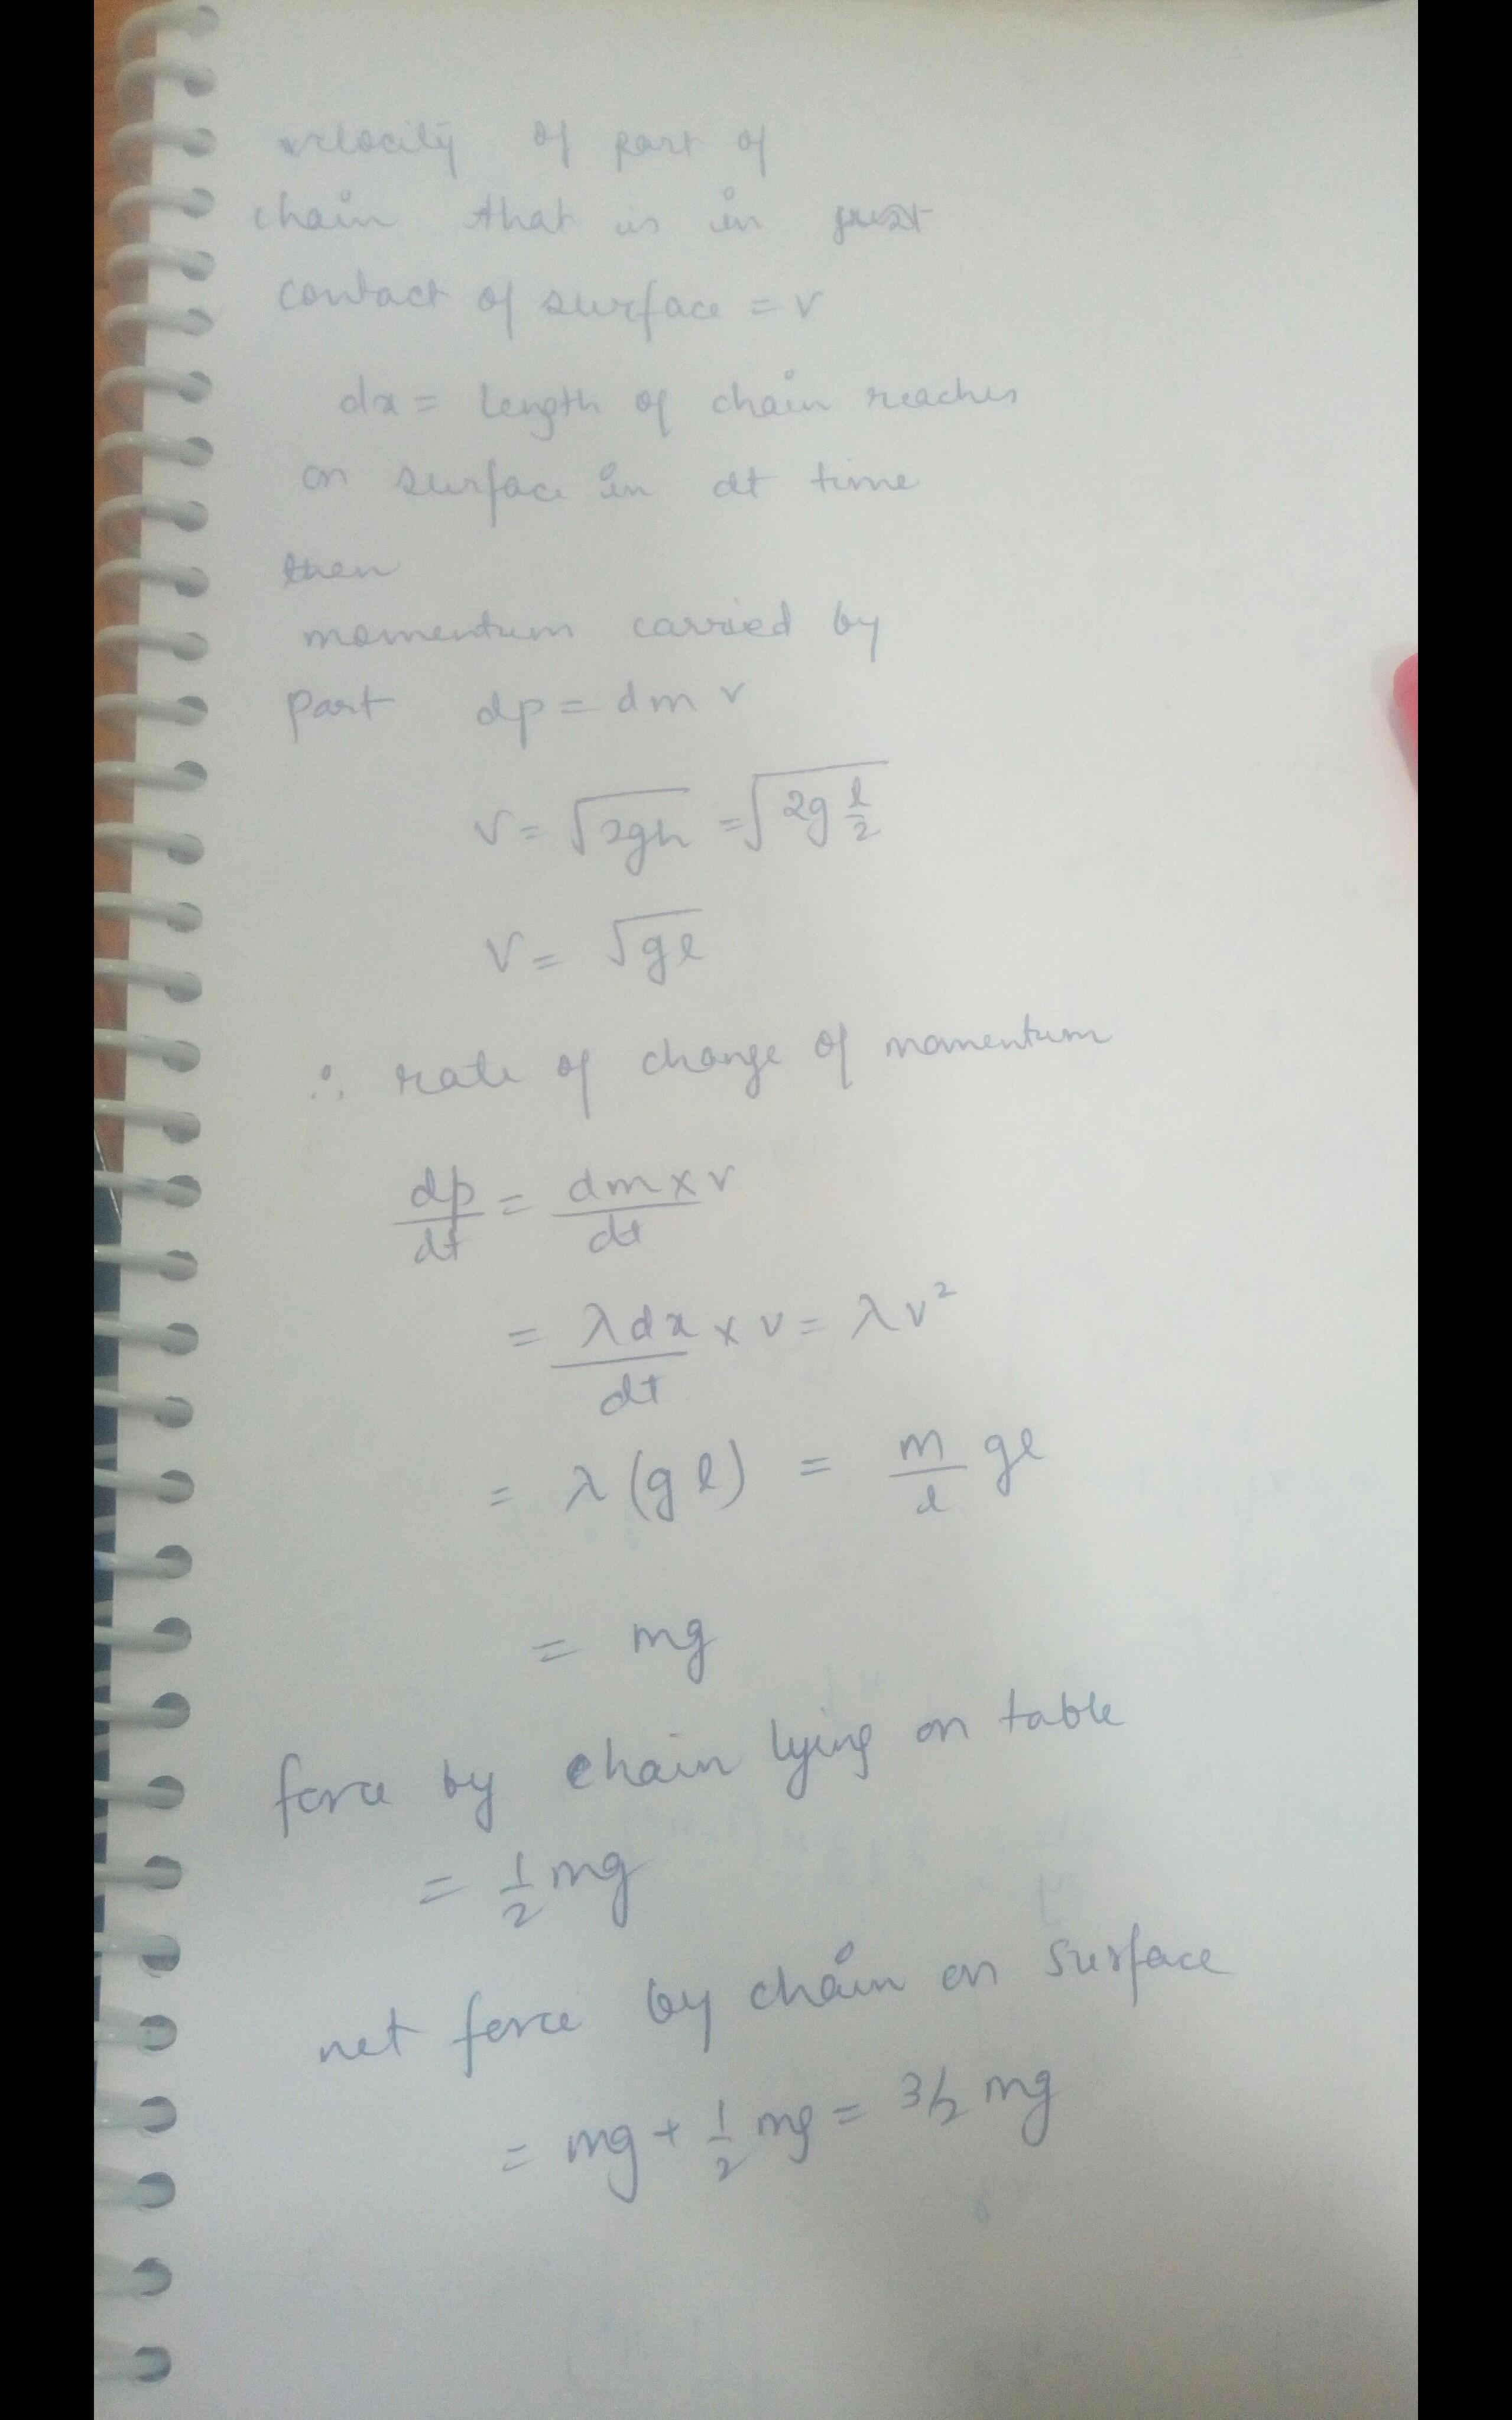 velocity of part of
chain that is in just
contact of surface = v
dx = length of chain reaches
on surface in dt time
then
momentum carried by
part dp = dm v
v = √2gh = √2g l/2
v = √gl
∴ rate of change of momentum
dp/dt = dm x v/dt
= λdx/dt x v = λv²
= λ(gl) = m/l gl
= mg
force by chain lying on table
= 1/2 mg
net force by chain on surface
= mg + 1/2 mg = 3/2 mg